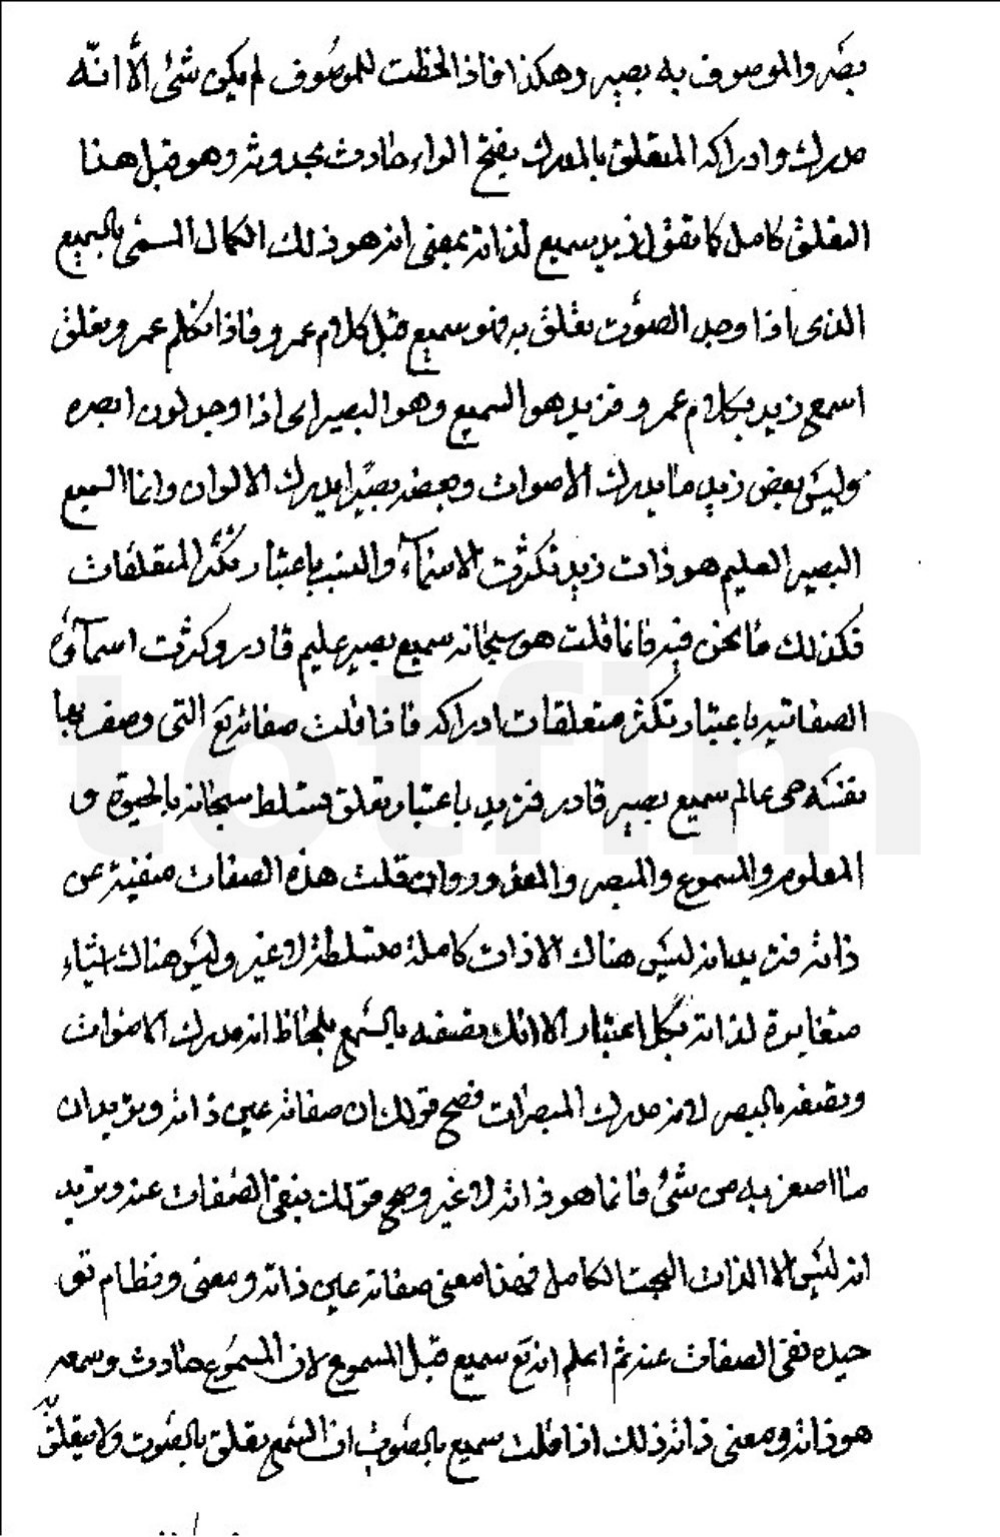 بصر والموصوف به بصير وهكذا فاذا لحظت للموصوف لم يكن شئ الّا انّه
مدرك وادراكه المتعلق بالمدرك بفتح الراء حادث بحدوثه وهو قبل هذا
التعلق كامل كما تقول زيد سميع لذاته بمعنى انه هو ذلك الكمال المسمّى بالسميع
الذى اذا وجد الصوت تعلق به فهو سميع قبل كلام عمرو فاذا تكلم عمرو تعلق
اسمع زيد بكلام عمرو فزيد هو السميع وهو البصير اى اذا وجد لون ابصره
وليس بعض زيد ما يدرك الأصوات وبعضه بصيرا يدرك الالوان وانما السميع
البصير العليم هو ذات زيد تكثرت الاسمآء والنسب باعتبار تكثر المتعلقات
فكذلك ما نحن فيه فانما قلت هو سبحانه سميع بصير عليم قادر وكثرت اسمآئه
الصفاتيه باعتبار تكثر متعلقات ادراكه فاذا قلت صفاته تع التى وصف بها
نفسه حى عالم سميع بصير قادر فتريد باعتبار تعلق تسلط سبحانه بالحيوة و
المعلوم والمسموع والمبصر والمقدور وان قلت هذه الصفات منفية عن
ذاته فتريد انه ليس هناك الا ذات كاملة متسلطة لا غير وليس هناك اشياء
متغايرة لذاته بكل اعتبار الا انك تصفه بالسمع بلحاظ انه مدرك الاصوات
وتصفه بالبصر لانه مدرك المبصرات فصح قولك ان صفاته عين ذاته وتريد ان
ما اصفه به من شئ فانما هو ذاته لا غير وصح قولك بنفى الصفات عنه وتريد
انه ليس الا الذات البحت الكامل فهذا معنى صفاته عين ذاته ومعنى ونظام تو
حيده نفى الصفات عنه ثم اعلم انه تع سميع قبل المسموع لان المسموع حادث وسمعه
هو ذاته ومعنى ذاته ذلك اذا قلت سميع بالصوت ان السمع تعلق بالصوت ولا يتعلق